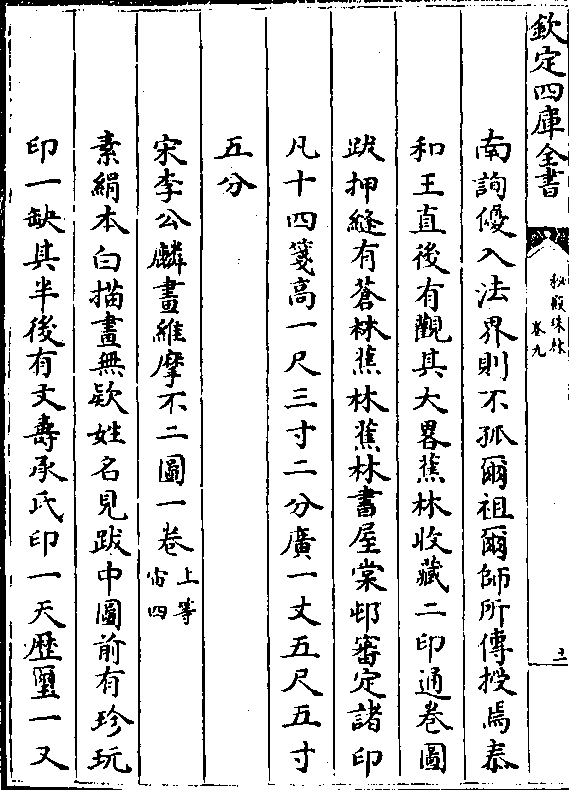 欽定四庫全書
秘殿珠林
卷九
南詢優入法界則不孤爾祖爾師所傳授焉泰
和王直後有觀其大畧蕉林收藏二印通卷圖
跋押縫有蒼林蕉林蕉林書屋棠邨審定諸印
凡十四箋高一尺三寸二分廣一丈五尺五寸
五分
宋李公麟畫維摩不二圖一卷 上等宙四
素絹本白描畫無欵姓名見跋中圖前有珍玩
印一缺其半後有丈壽承氏印一天歷璽一又